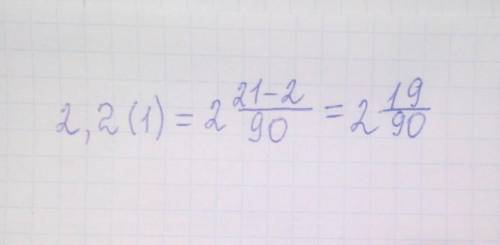 2,2(1) = 2 21-2/90 = 2 19/90